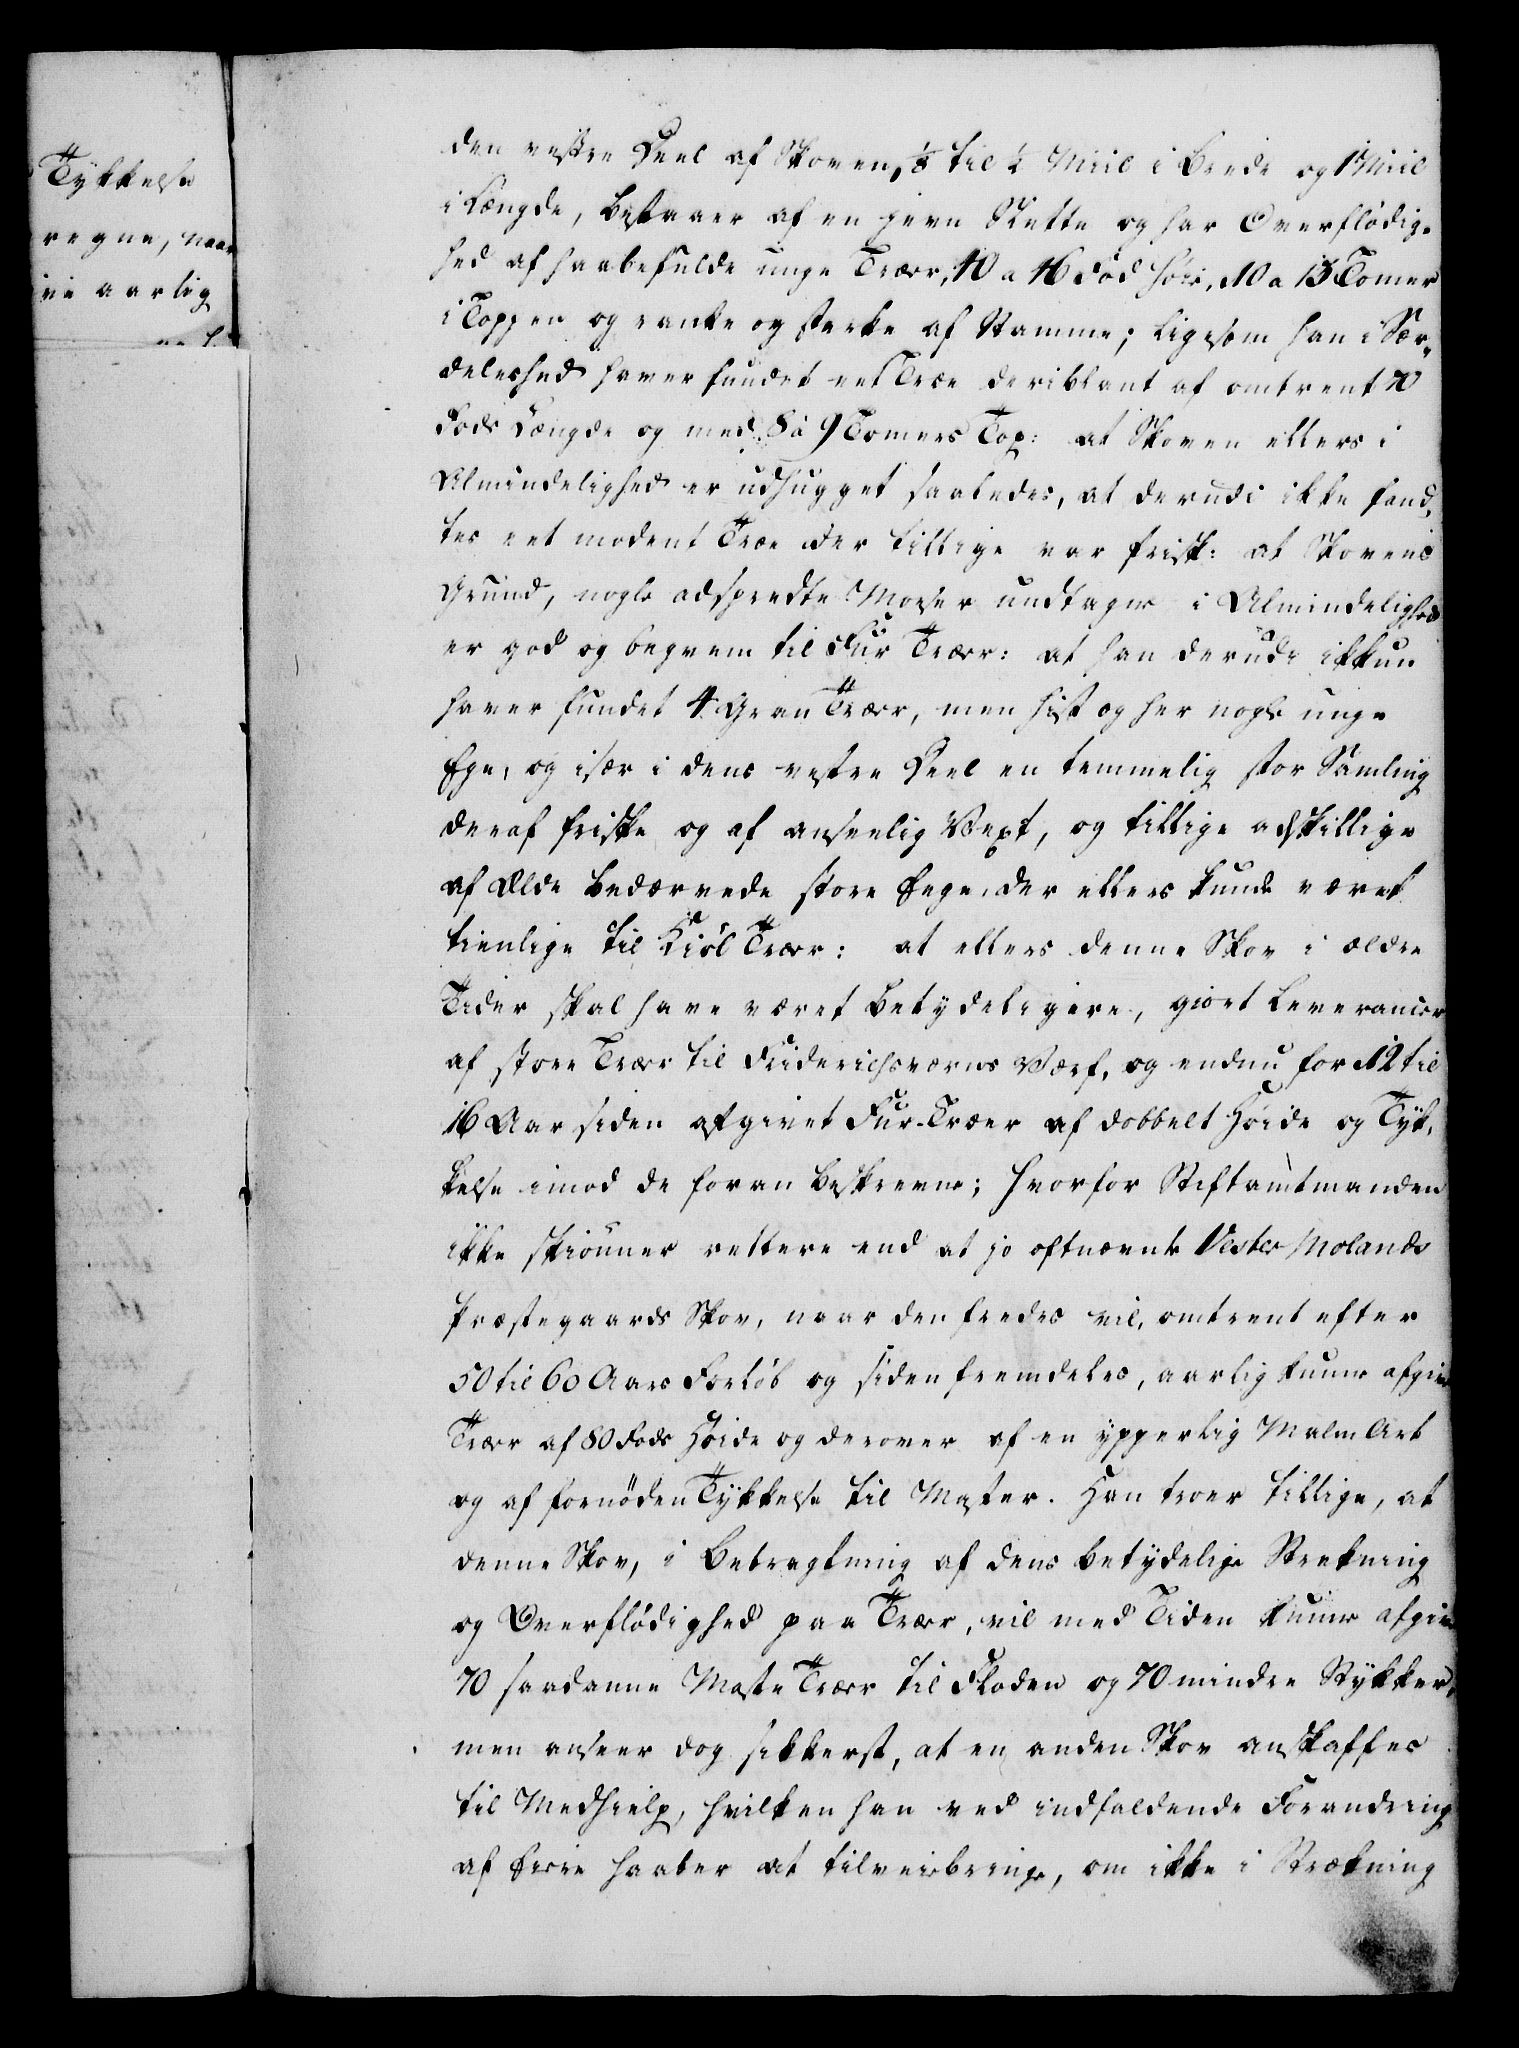 Tykkelse
regne, naar
ive aarlig
den vestre Deel af Skoven, 1/8 til 1/4 Miil i Brede og 1 Miil
i Længde, bestaaer af en jevn Slette og har Overflødig-
hed af haabefulde unge Træer, 40 a 46 Fod høie, 10 a 13 Tomer
i Toppen og ranke og sterke af Stamme; ligesom han i Sær-
deleshed haver fundet eet Træe deriblant af omtrent 70
Fods Længde og med 8 à 9 Tomers Top: at Skoven ellers i
Almindelighed er udhugget saaledes, at derudi ikke fand-
tes eet modent Træe der tillige var frisk: at Skovens
Grund, nogle adspredte Moser undtagen i Almindelighed
er god og beqvem til Fur Træer: at han derudi ikkun
haver fundet 4 Gran Træer, men hist og her nogle unge
Ege, og især i dens vestre Deel en temmelig stor Samling
deraf friske og af anseelig Vext, og tillige adskillige
af Ælde bedærvede store Eege, der ellers kunde været
tienlige til Kiøl Træer: at ellers denne Skov i ældre
Tider skal have været betydeligere, giort Leverancer
af store Træer til Friderichsværns Værf, og endnu for 12 til
16 Aar siden afgivet Fur-Træer af dobbelt Høide og Tyk-
kelse imod de foran beskrevne; hvorfor Stiftamtmanden
ikke skiønner rettere end at jo oftnævnte Vester Molands
Præstegaards Skov, naar den fredes vil, omtrent efter
50 til 60 Aars Forløb og siden fremdeles, aarlig kunne afgive
Træer af 80 Fods Høide og derover af en ypperlig Malm Art
og af fornøden Tykkelse til Master. Han troer tillige, at
denne Skov, i Betragtning af dens betydelige Strekning
og Overflødighed paa Træer, vil med Tiden kunne afgive
70 saadanne Maste Træer til Floden og 70 mindre Stykker,
men anseer dog sikkerst, at en anden Skov anskaffes
til Medhielp, hvilken han ved indfaldende Forandring
af Eiere haaber at tilveiebringe, om ikke i Strækning